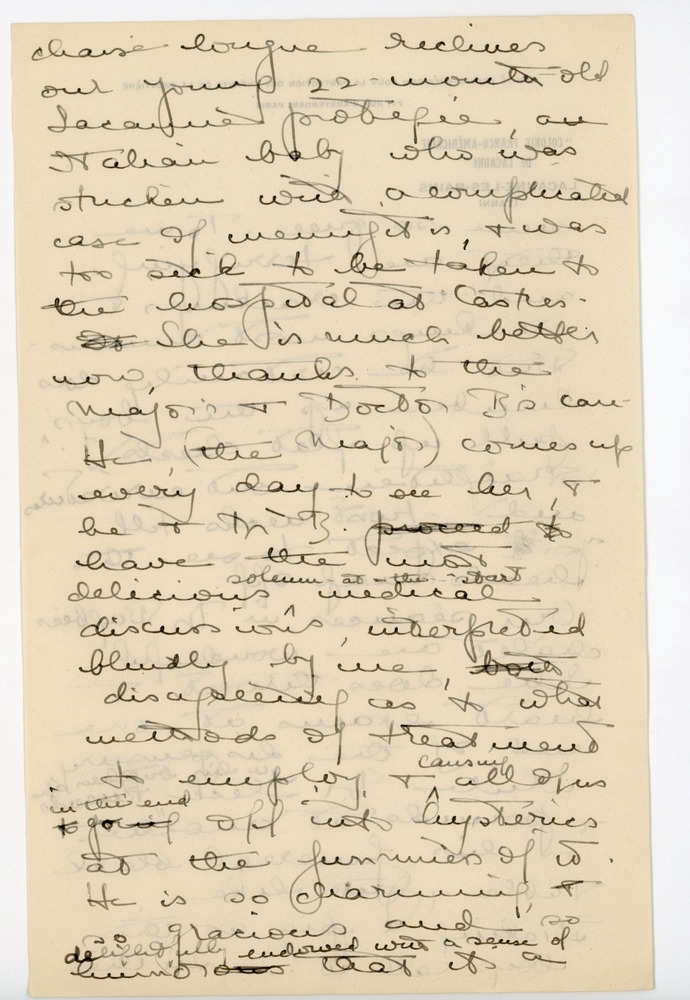 chaise longue reclines
our young 22-month-old
Lacaune protégée, an
Italian baby who was
stricken with a complicated
case of meningitis, & was
too sick to be taken to
the hospital at Castres.
She is much better
now, thanks to the
Major's & Doctor B's care.
He (the Major) comes up
every day to see her, &
he & Dr. B. proceed to
have the most
solemn-at-the-start
delicious medical
discussions, interpreted
blindly by me, both
disagreeing as to what
methods of treatment
to employ, & causing all of us
in the end
to going off into hysterics
at the funniness of it.
He is so charming, &
so gracious and so
delightfully endowed with a sense of
humor that it's a
COLONIE FRANCO-AMÉRICAINE
DE LACAUNE
LACAUNE-LES-BAINS